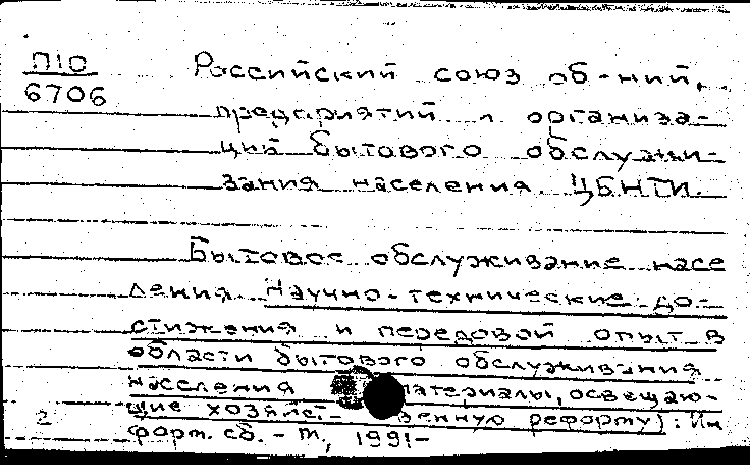 П10
6706
Российский союз об-ний,
предприятий и организа-
ций бытового обслужи-
вания населения. ЦБНТИ.
Бытовое обслуживание насе
ления. Научно-технические до-
стижения и передовой опыт в
области бытового обслуживания
населения материалы, освещаю-
щие хозяйст- венную реформу): Ин
форм. сб. - М., 1991-
2